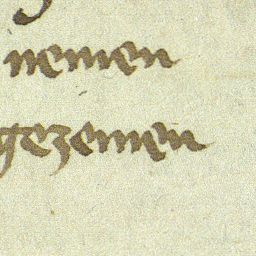 nemen
gezemen